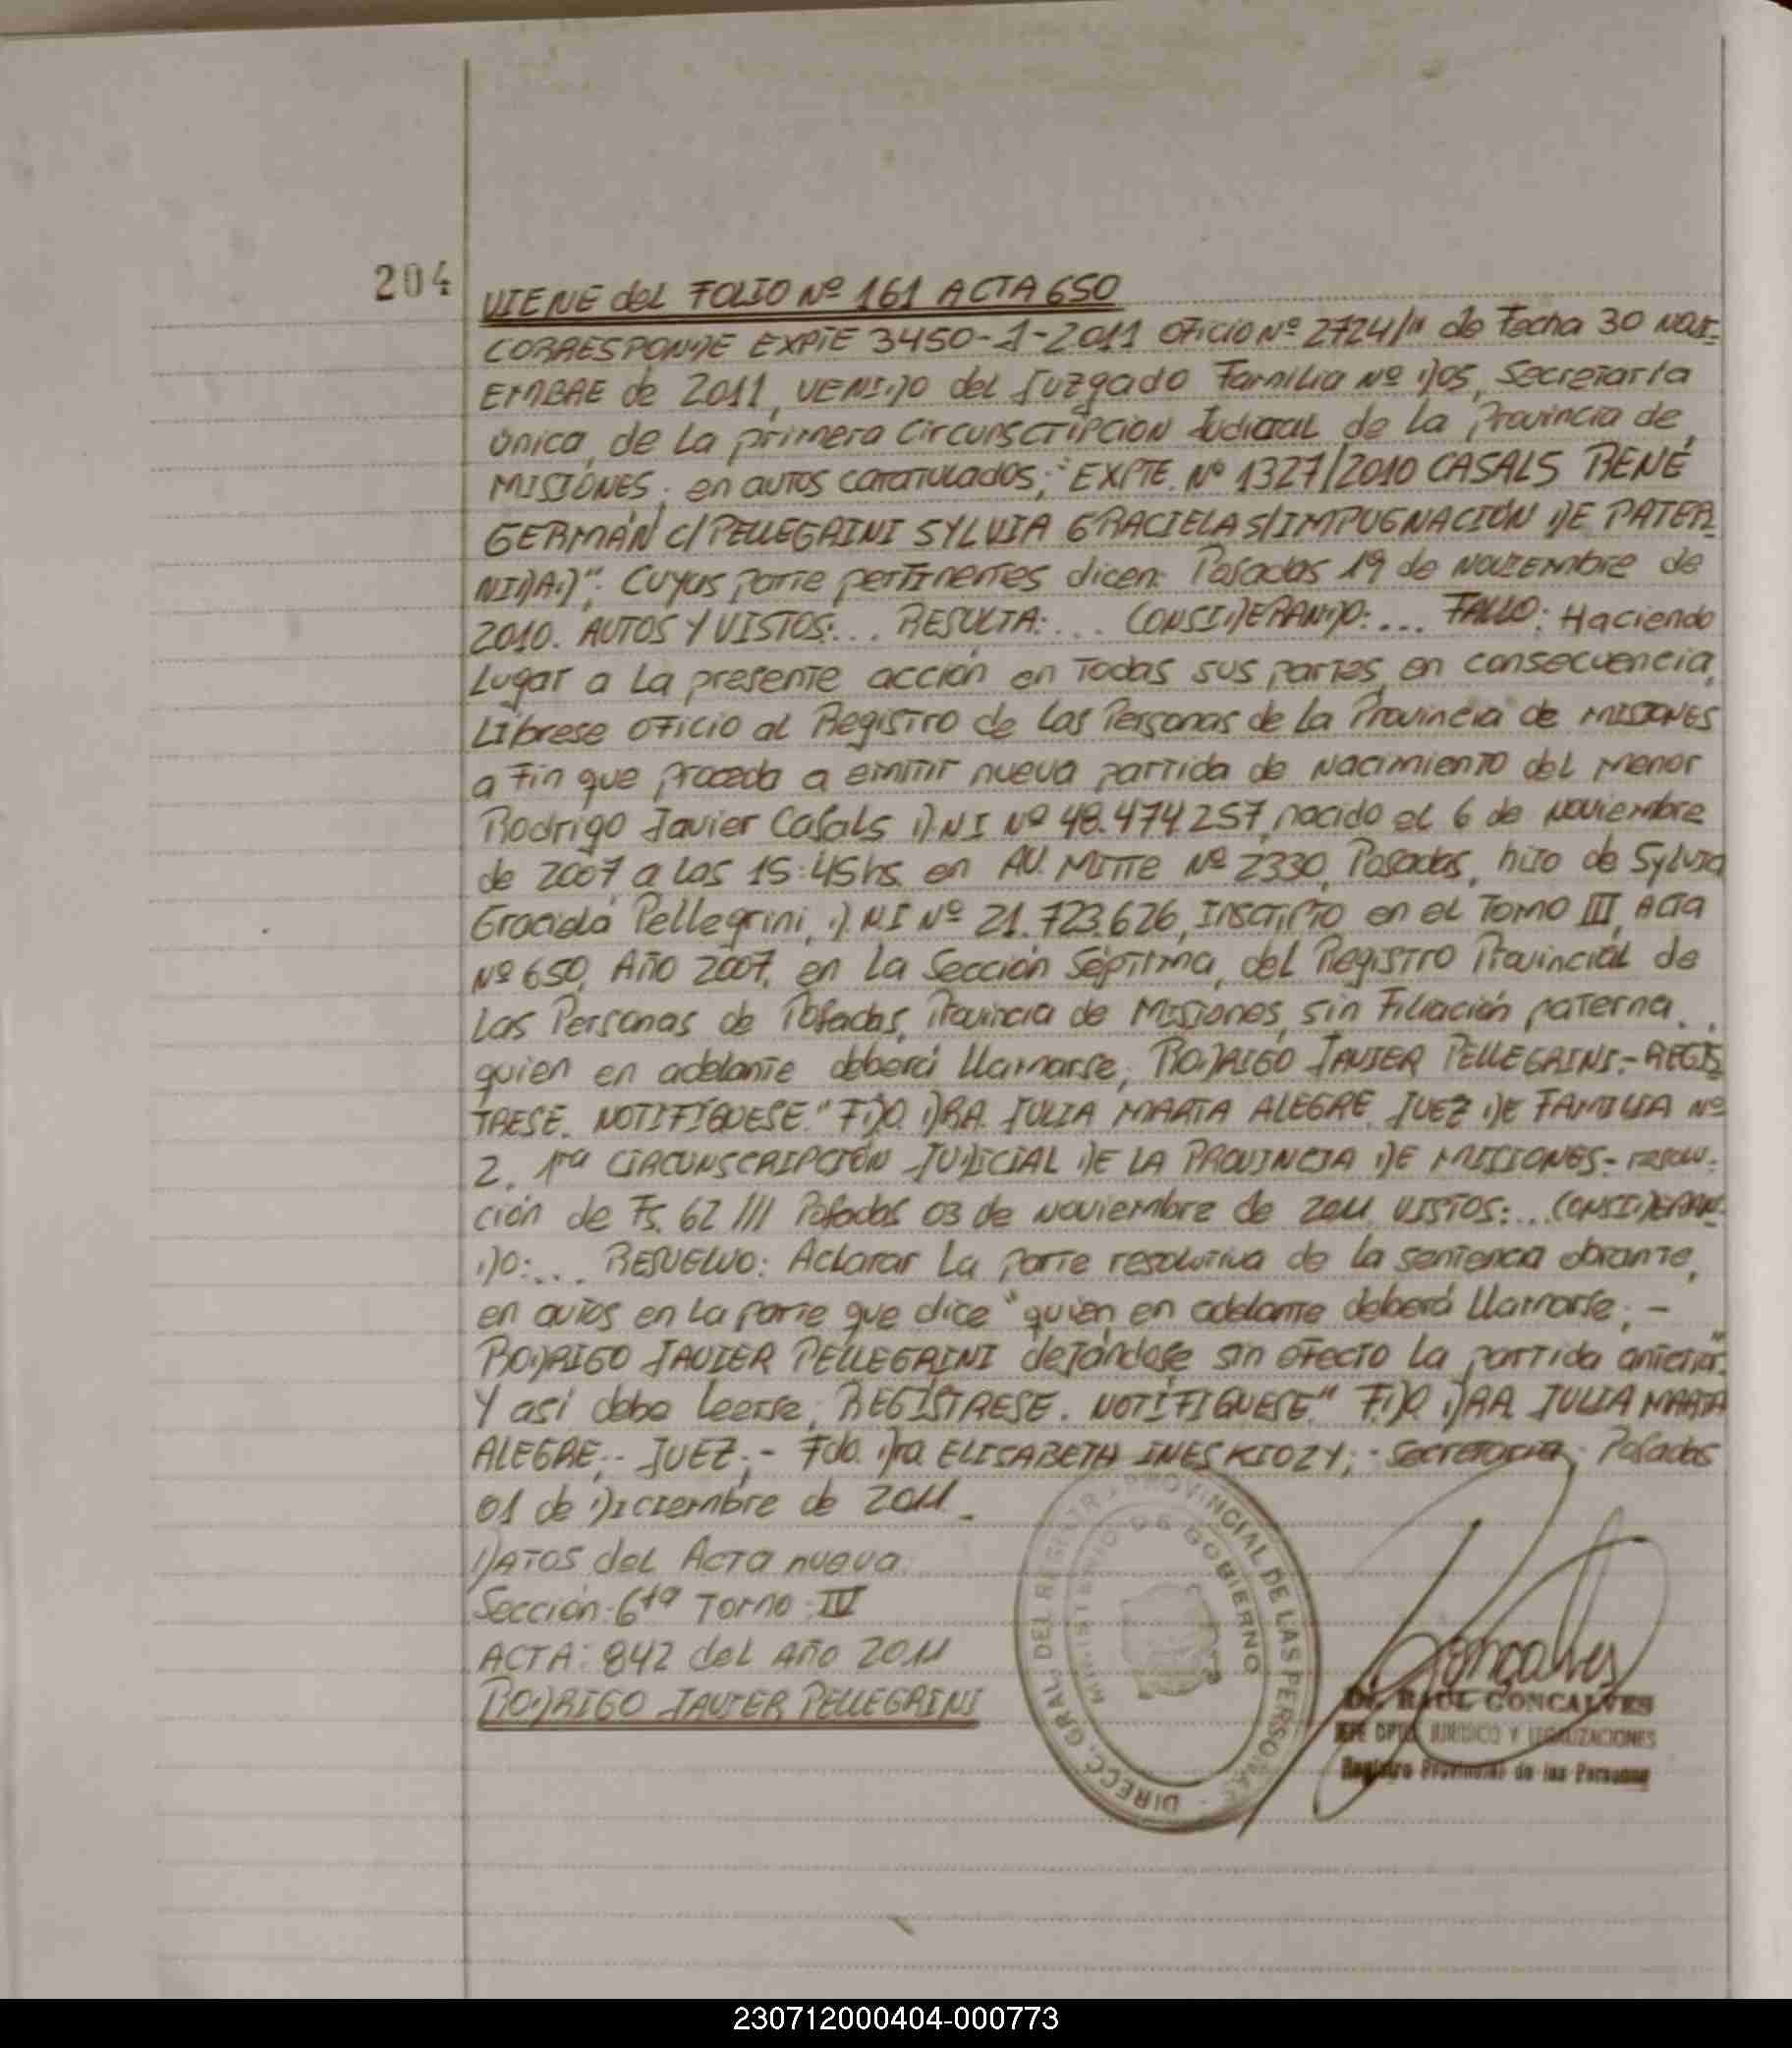 204
VIENE del FOLIO Nº 161 ACTA 650
CORRESPONDE EXPTE 3450-1-2011 OFICIO Nº 2724/11 de Fecha 30 NOVI-
EMBRE de 2011, VENIDO del Juzgado Familia Nº DOS, Secretaria
única, de La primera Circunscripción Judicial de la Provincia de
MISIONES. en autos caratulados; "EXPTE. Nº 1327/2010 CASALS RENÉ
GERMÁN C/ PELLEGRINI SYLVIA GRACIELA S/IMPUGNACIÓN DE PATER-
NIDAD"; Cuyas parte pertinentes dicen: Posadas 19 de NOVIEMbre de
2010. AUTOS Y VISTOS:... RESULTA:... CONSIDERANDO:... FALLO: Haciendo
Lugar a La presente acción en Todas sus partes, en consecuencia,
Líbrese OFICIO al Registro de Las Personas de La Provincia de MISIONES
a Fin que proceda a emitir nueva partida de Nacimiento del Menor
Rodrigo Javier Casals D.N.I Nº 48.474.257, nacido el 6 de Noviembre
de 2007 a Las 15:45hs. en AV. MITTE Nº 2330, Posadas, hijo de Sylvia
Graciela Pellegrini, D.N.I Nº 21.723.626, Inscripto en el Tomo III, Acta
Nº 650, Año 2007, en La Sección Séptima, del Registro Provincial de
Las Personas de Posadas, Provincia de Misiones, sin Filiación paterna.
quien en adelante deberá llamarse; RODRIGO JAVIER PELLEGRINI.- REGIS
TRESE. NOTIFÍQUESE." FDO. DRA. JULIA MARTA ALEGRE. JUEZ DE FAMILIA Nº
2. 1ra CIRCUNSCRIPCIÓN JUDICIAL DE LA PROVINCIA DE MISIONES.- resolu-
ción de Fs. 62 /// Posadas 03 de Noviembre de 2011. VISTOS:... CONSIDERAN-
DO:... RESUELVO: Aclarar La parte resolutiva de la sentencia obrante,
en autos en La parte que dice "quien en adelante deberá llamarse; -
RODRIGO JAVIER PELLEGRINI dejándose sin efecto La partida anterior"
Y así debe Leerse. REGÍSTRESE. NOTIFIQUESE." F.DO. DRA. JULIA MARTA
ALEGRE;- JUEZ;- Fdo. Dra ELISABETH INES KIOZY;- Secretaria; Posadas
01 de Diciembre de 2011.
DATOS del Acta nueva:
Sección: 6ta Tomo: IV
ACTA: 842 del Año 2011
RODRIGO JAVIER PELLEGRINI
DIRECC. GRAL DEL REGISTRO PROVINCIAL DE LAS PERSONAS
MINISTERIO DE GOBIERNO
Goncalves
Dr. RAUL GONCALVES
JEFE DPTO. JURIDICO Y LEGALIZACIONES
Registro Provincial de las Personas
230712000404-000773